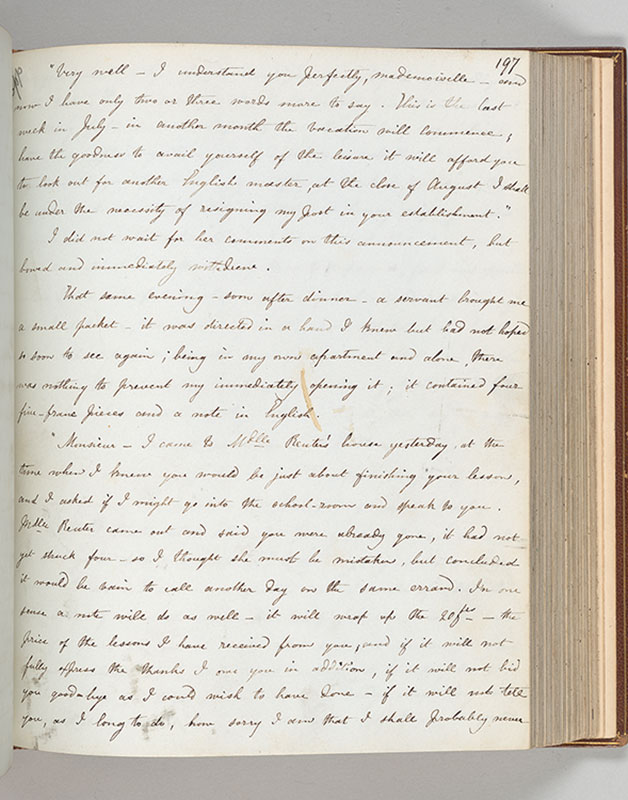 197
"Very well – I understand you perfectly, mademoiselle – and
now I have only two or three words more to say. This is the last
week in July – in another month the vacation will commence;
have the goodness to avail yourself of the leisure it will afford you
to look out for another English master, at the close of August I shall
be under the necessity of resigning my post in your establishment."
I did not wait for her comments on this announcement, but
bowed and immediately withdrew.
That same evening – soon after dinner – a servant brought me
a small packet – it was directed in a hand I knew but had not hoped
so soon to see again; being in my own apartment and alone, there
was nothing to prevent my immediately opening it; it contained four
five-franc pieces and a note in English.
"Monsieur – I came to Mdlle Reuter's house yesterday, at the
time when I knew you would be just about finishing your lesson,
and I asked if I might go into the school-room and speak to you.
Mdlle Reuter came out and said you were already gone, it had not
yet struck four – so I thought she must be mistaken, but concluded
it would be vain to call another day on the same errand. In one
sense a note will do as well – it will wrap up the 20 frs – the
price of the lessons I have received from you, and if it will not
fully express the thanks I owe you in addition, if it will not bid
you good-bye as I could wish to have done – if it will not tell
you, as I long to do, how sorry I am that I shall probably never